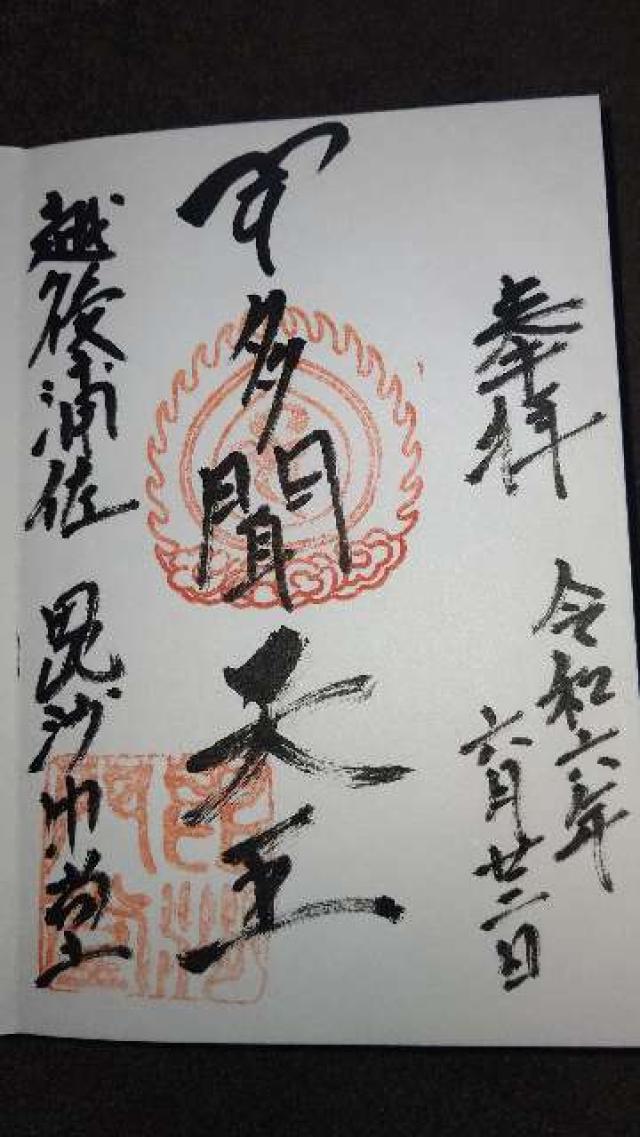 奉拝
令和六年
六月廿二日
多聞天王
越後浦佐 毘沙門堂